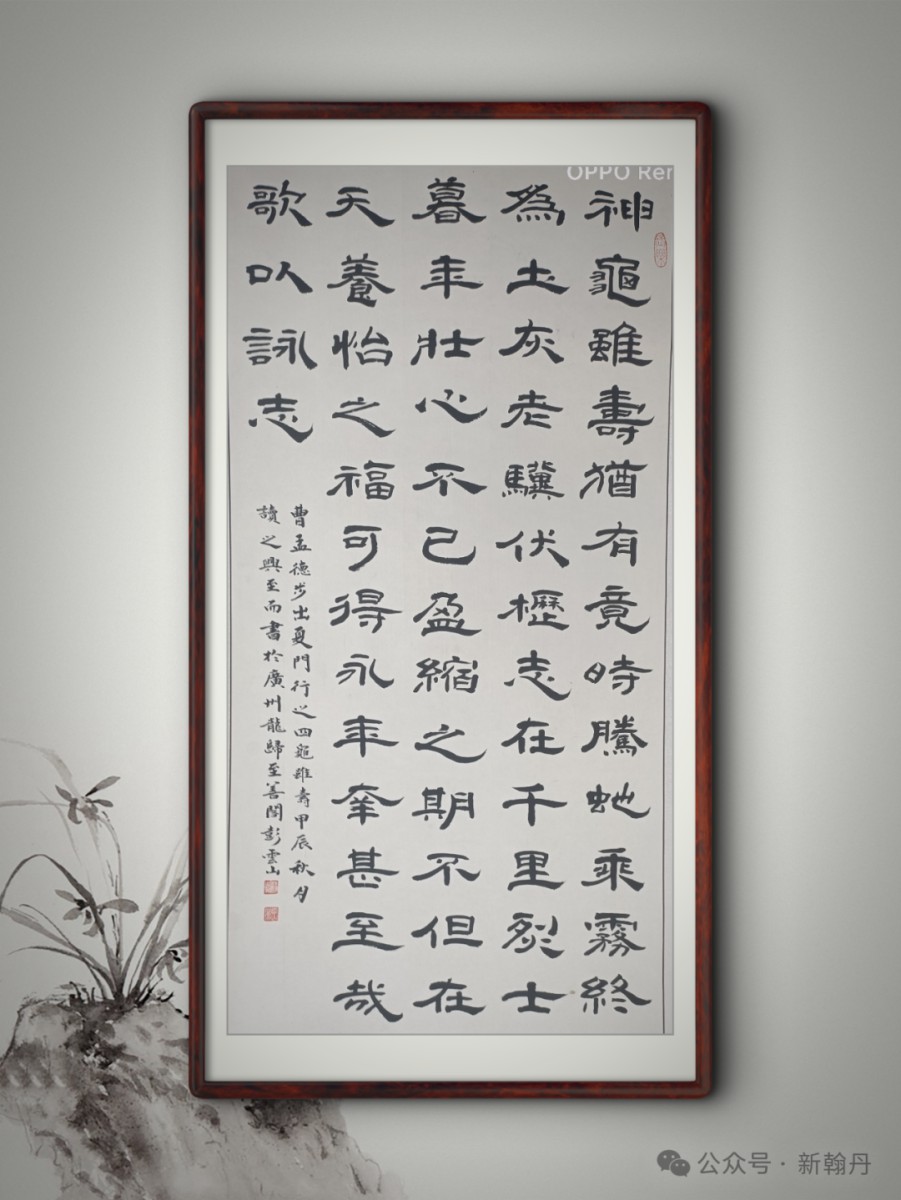 OPPO Ren
神龜雖壽猶有竟時騰虵乘霧終
爲土灰老驥伏櫪志在千里烈士
暮年壯心不已盈縮之期不但在
天養怡之福可得永年幸甚至哉
歌以詠志
曹孟德步出夏門行之四龜雖壽甲辰秋月
讀之興至而書於廣州龍歸至善閣彭雲山
公众号·新翰丹